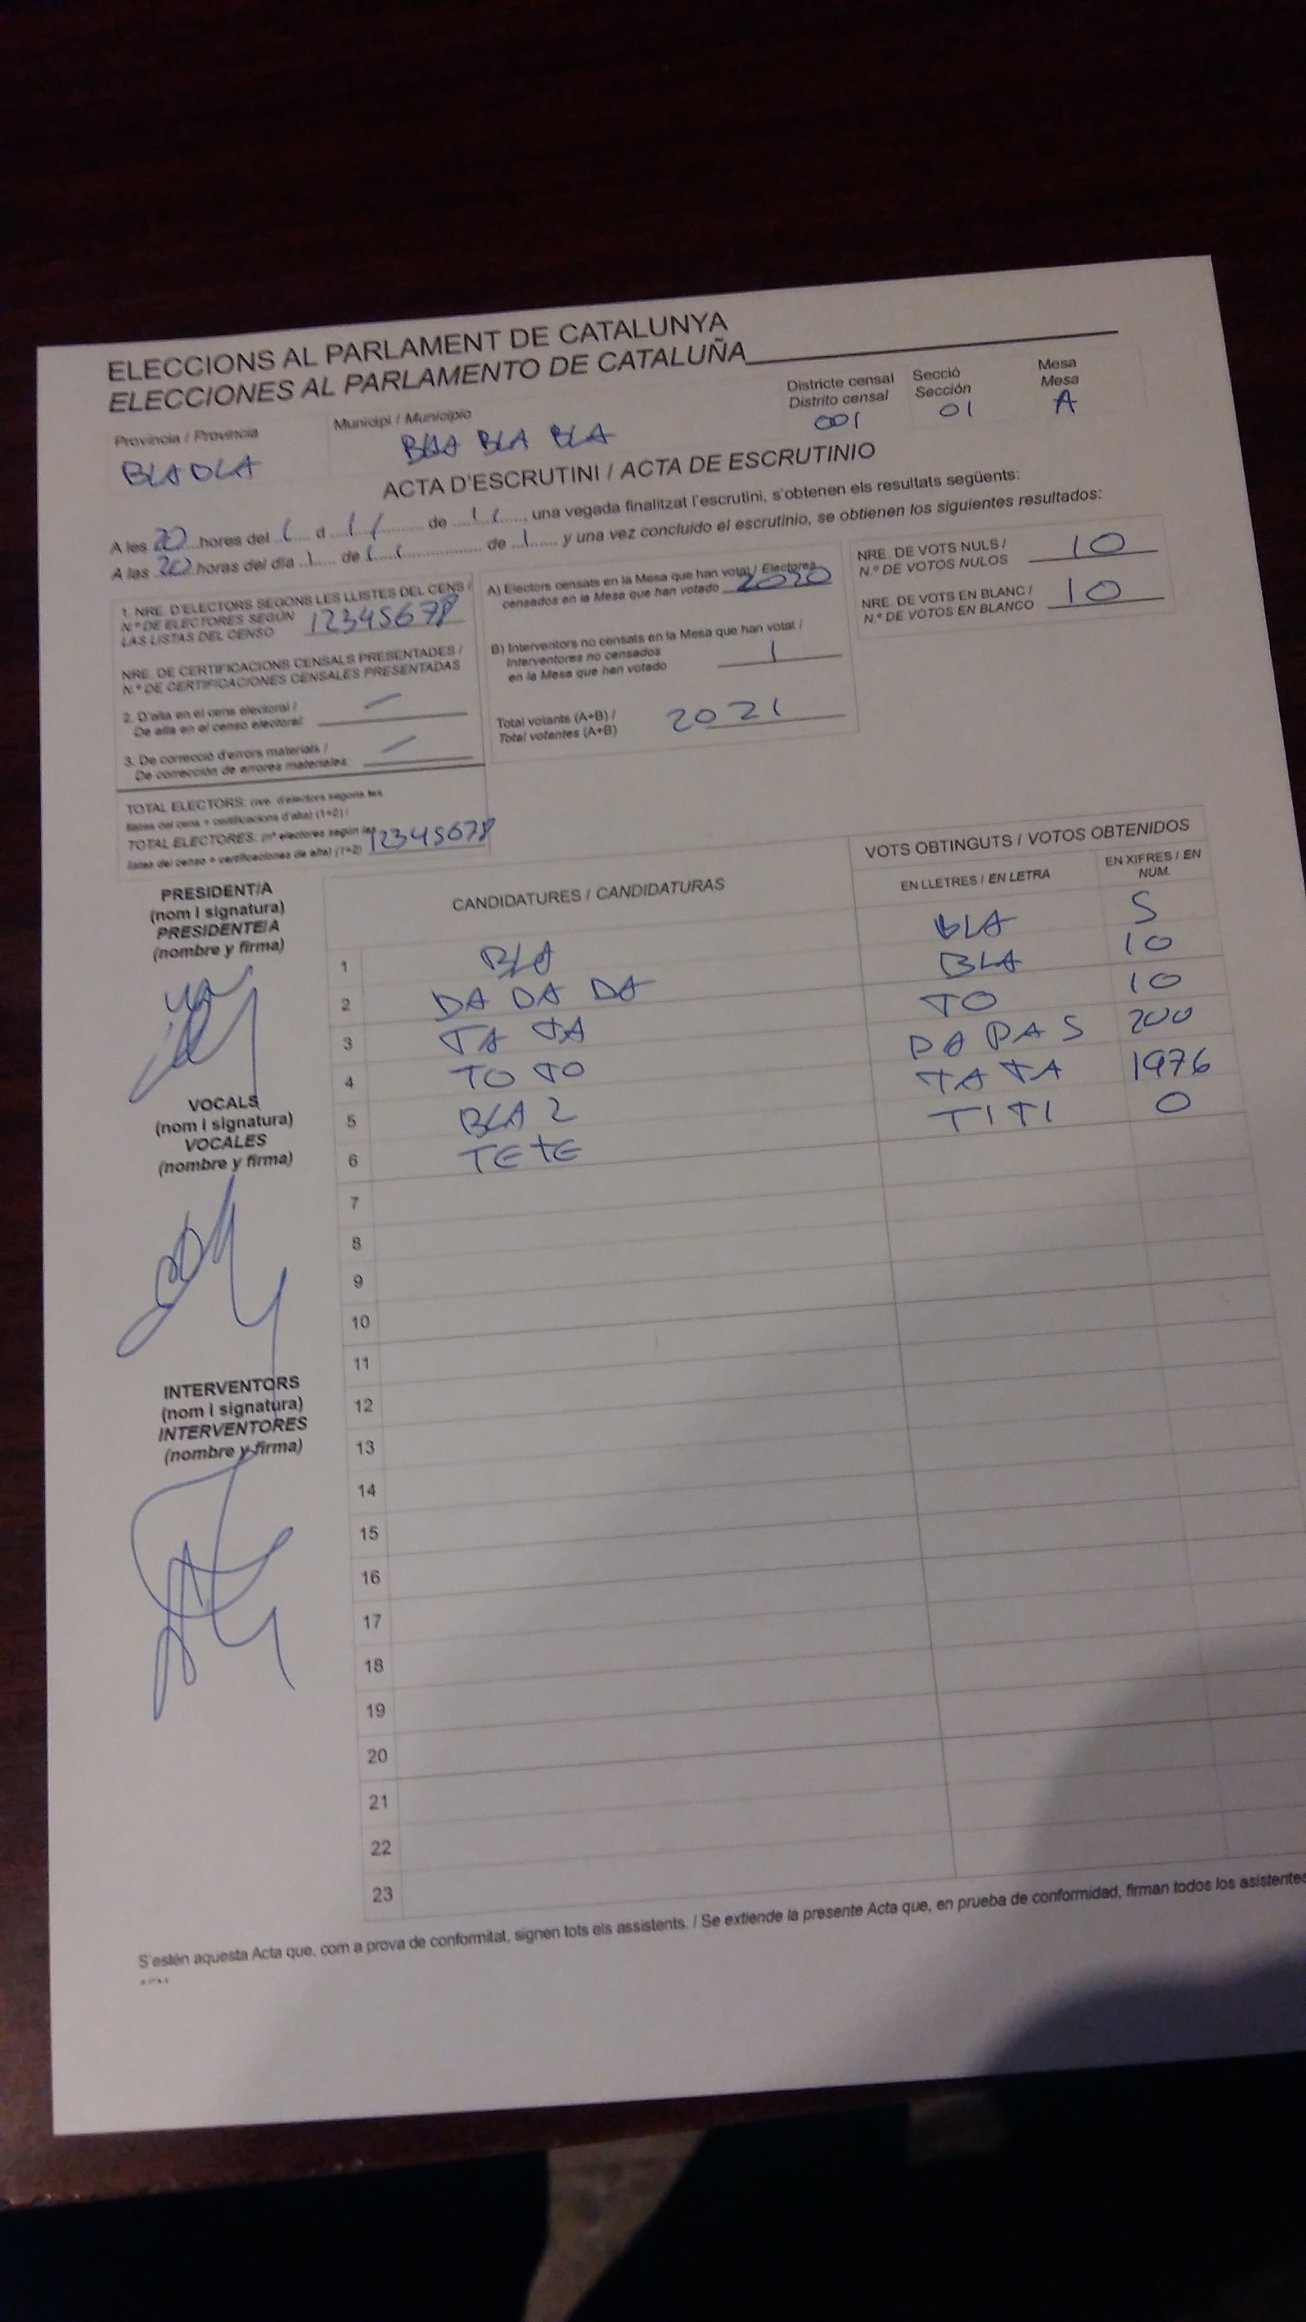 ELECCIONS AL PARLAMENT DE CATALUNYA
ELECCIONES AL PARLAMENTO DE CATALUÑA
Província / Provincia
BLA BLA
Municipi / Municipio
BLA BLA BLA
Districte censal
Distrito censal
001
Secció
Sección
01
Mesa
Mesa
A
ACTA D'ESCRUTINI / ACTA DE ESCRUTINIO
A les 20 hores del 1 d 11 de 11, una vegada finalitzat l'escrutini, s'obtenen els resultats següents:
A las 20 horas del día 1 de 11 de 1 y una vez concluido el escrutinio, se obtienen los siguientes resultados:
1. NRE. D'ELECTORS SEGONS LES LLISTES DEL CENS /
N.º DE ELECTORES SEGÚN
LAS LISTAS DEL CENSO 12345678
NRE. DE CERTIFICACIONS CENSALS PRESENTADES /
N.º DE CERTIFICACIONES CENSALES PRESENTADAS
2. D'alta en el cens electoral /
De alta en el censo electoral: —
3. De correcció d'errors materials /
De corrección de errores materiales: —
TOTAL ELECTORS: (nre. d'electors segons les
llistes del cens + certificacions d'alta) (1+2) /
TOTAL ELECTORES: (nº electores según las
listas del censo + certificaciones de alta) (1+2) 12345678
A) Electors censats en la Mesa que han votat / Electores
censados en la Mesa que han votado 2020
B) Interventors no censats en la Mesa que han votat /
Interventores no censados
en la Mesa que han votado 1
Total votants (A+B) /
Total votantes (A+B) 2021
NRE. DE VOTS NULS /
N.º DE VOTOS NULOS 10
NRE. DE VOTS EN BLANC /
N.º DE VOTOS EN BLANCO 10
PRESIDENT/A
(nom i signatura)
PRESIDENTE/A
(nombre y firma)
VOCALS
(nom i signatura)
VOCALES
(nombre y firma)
INTERVENTORS
(nom i signatura)
INTERVENTORES
(nombre y firma)
CANDIDATURES / CANDIDATURAS
VOTS OBTINGUTS / VOTOS OBTENIDOS
EN LLETRES / EN LETRA
EN XIFRES / EN
NUM.
1 BLA BLA 5
2 DA DA DA BLA 10
3 TA TA TO 10
4 TO TO PAPAS 200
5 BLA 2 TATA 1976
6 TETE TITI 0
7
8
9
10
11
12
13
14
15
16
17
18
19
20
21
22
23
S'estén aquesta Acta que, com a prova de conformitat, signen tots els assistents. / Se extiende la presente Acta que, en prueba de conformidad, firman todos los asistentes